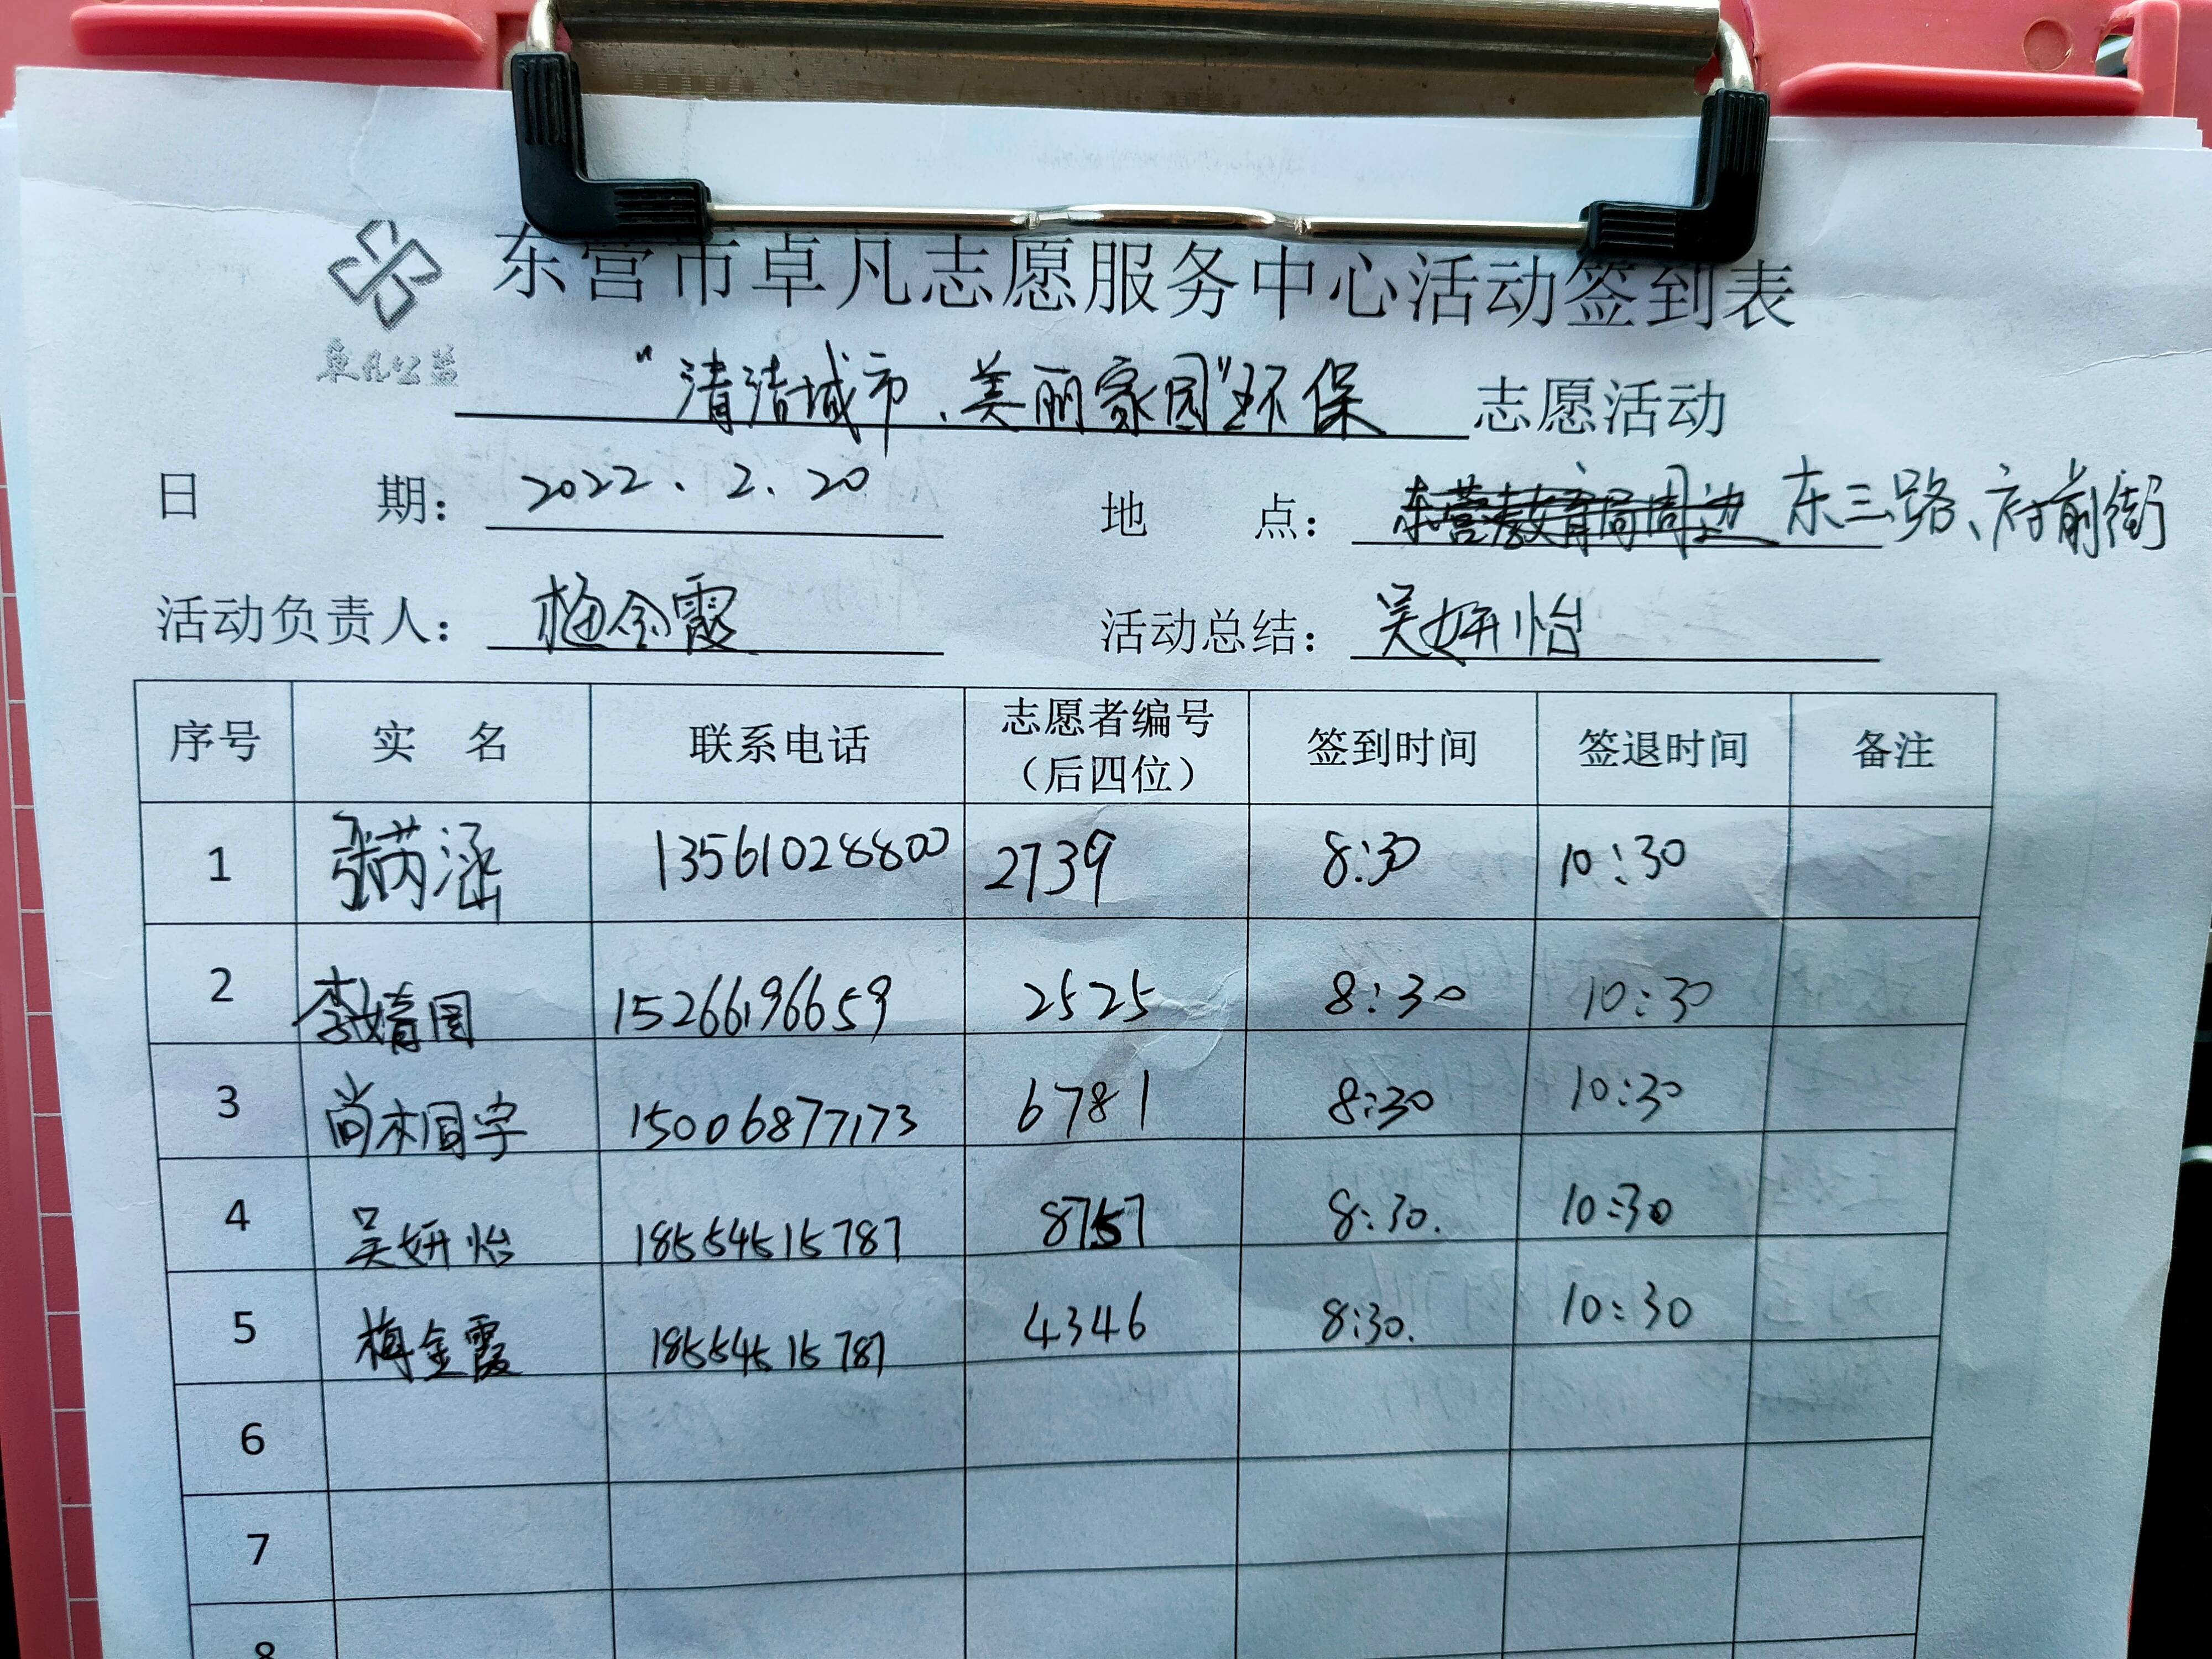 东营市卓凡志愿服务中心活动签到表
卓凡公益
“清洁城市、美丽家园”环保 志愿活动
日 期： 2022.2.20 地 点： 东营教育局周边 东三路、府前街
活动负责人： 梅金霞 活动总结： 吴妍怡
序号 实 名 联系电话 志愿者编号（后四位） 签到时间 签退时间 备注
1 张芮涵 13561028800 2739 8:30 10:30
2 李婧图 15266196659 2525 8:30 10:30
3 尚桐宇 15006877173 6781 8:30 10:30
4 吴妍怡 18554515787 8757 8:30. 10:30
5 梅金霞 18554515787 4346 8:30. 10:30
6
7
8